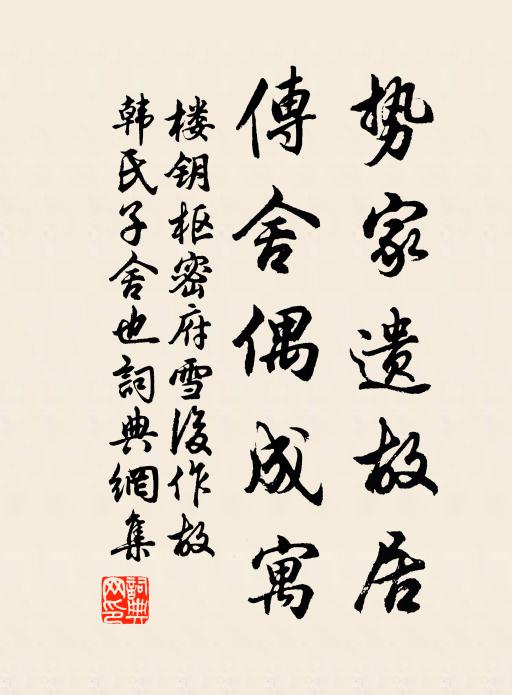 势家遗故居
傳舍偶成寓
楼钥枢密府雪後作故
韩氏子舍也詞典網集
詞典网印